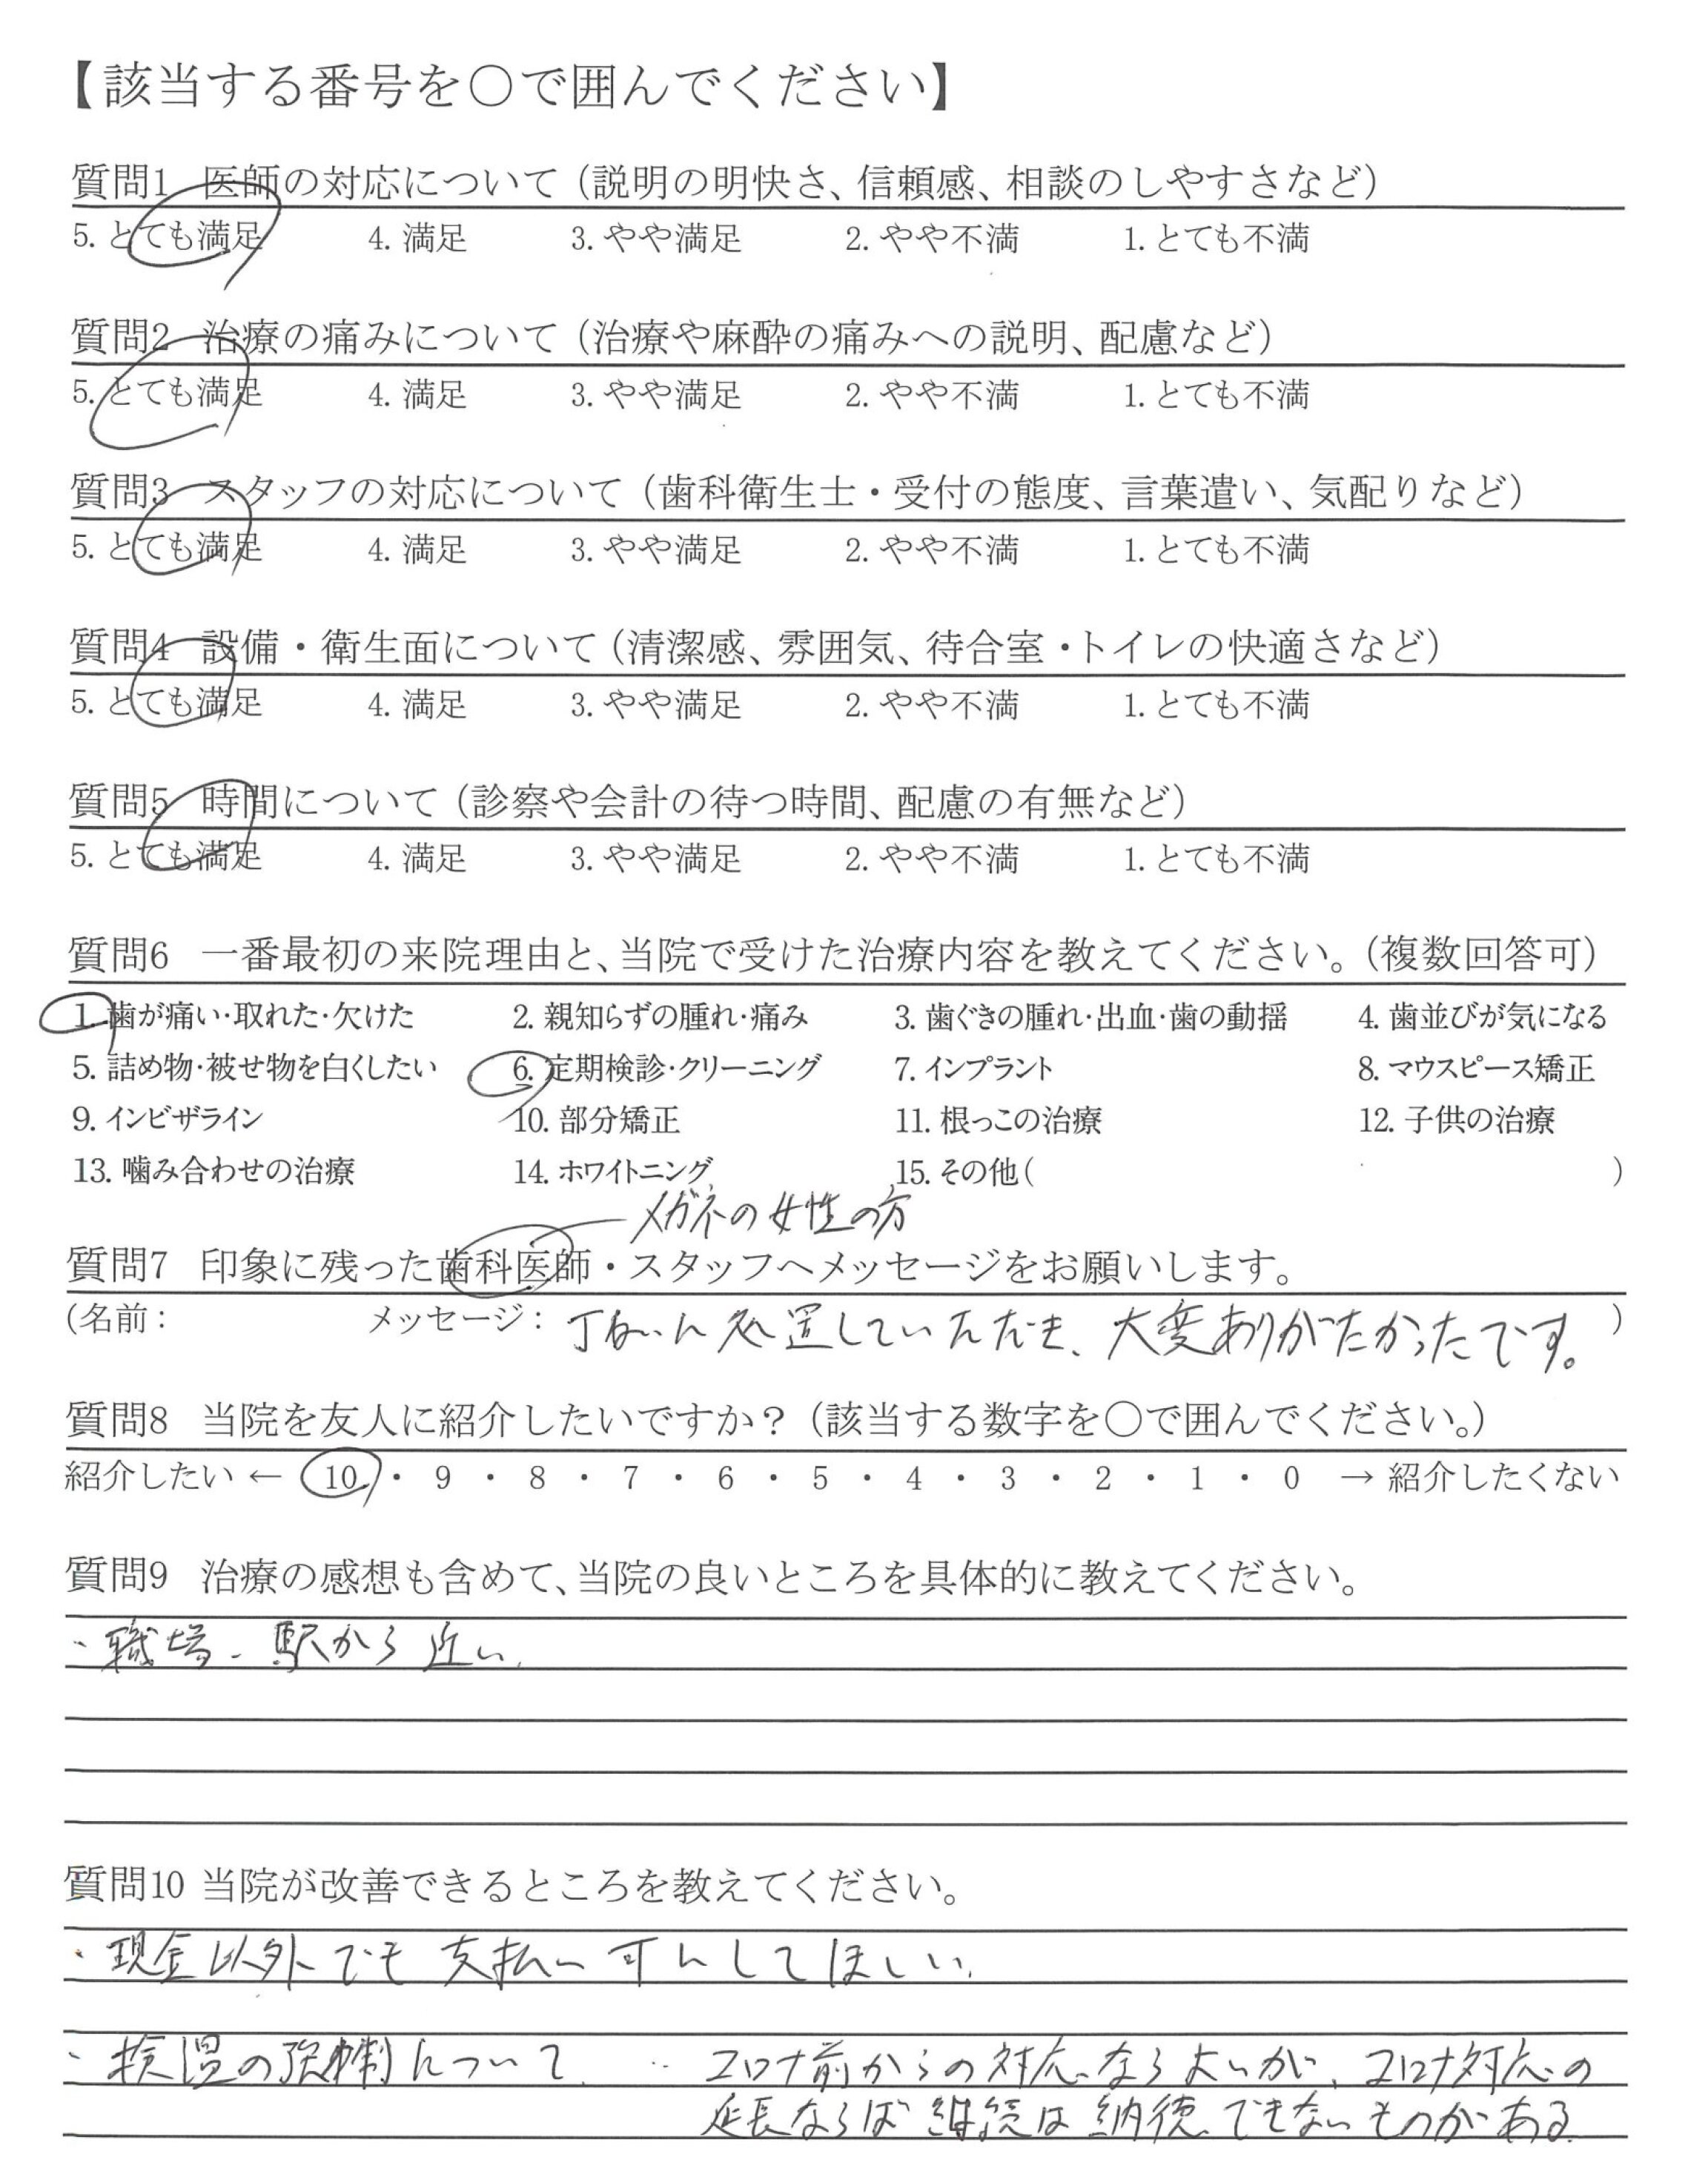 【該当する番号を○で囲んでください】
質問1 医師の対応について（説明の明快さ、信頼感、相談のしやすさなど）
5. とても満足 4. 満足 3. やや満足 2. やや不満 1. とても不満
質問2 治療の痛みについて（治療や麻酔の痛みへの説明、配慮など）
5. とても満足 4. 満足 3. やや満足 2. やや不満 1. とても不満
質問3 スタッフの対応について（歯科衛生士・受付の態度、言葉遣い、気配りなど）
5. とても満足 4. 満足 3. やや満足 2. やや不満 1. とても不満
質問4 設備・衛生面について（清潔感、雰囲気、待合室・トイレの快適さなど）
5. とても満足 4. 満足 3. やや満足 2. やや不満 1. とても不満
質問5 時間について（診察や会計の待つ時間、配慮の有無など）
5. とても満足 4. 満足 3. やや満足 2. やや不満 1. とても不満
質問6 一番最初の来院理由と、当院で受けた治療内容を教えてください。（複数回答可）
1. 歯が痛い・取れた・欠けた 2. 親知らずの腫れ・痛み 3. 歯ぐきの腫れ・出血・歯の動揺 4. 歯並びが気になる
5. 詰め物・被せ物を白くしたい 6. 定期検診・クリーニング 7. インプラント 8. マウスピース矯正
9. インビザライン 10. 部分矯正 11. 根っこの治療 12. 子供の治療
13. 噛み合わせの治療 14. ホワイトニング 15. その他（ ）
メガネの女性の方
質問7 印象に残った歯科医師・スタッフへメッセージをお願いします。
（名前： メッセージ：丁ねいに処置していただき、大変ありがたかったです。）
質問8 当院を友人に紹介したいですか？（該当する数字を○で囲んでください。）
紹介したい ← 10 ・ 9 ・ 8 ・ 7 ・ 6 ・ 5 ・ 4 ・ 3 ・ 2 ・ 1 ・ 0 → 紹介したくない
質問9 治療の感想も含めて、当院の良いところを具体的に教えてください。
・職場、駅から近い。
質問10 当院が改善できるところを教えてください。
・現金以外でも支払い可にしてほしい。
・検温の強制について… コロナ前からの対応ならよいが、コロナ対応の
延長ならば継続は納得できないものがある。